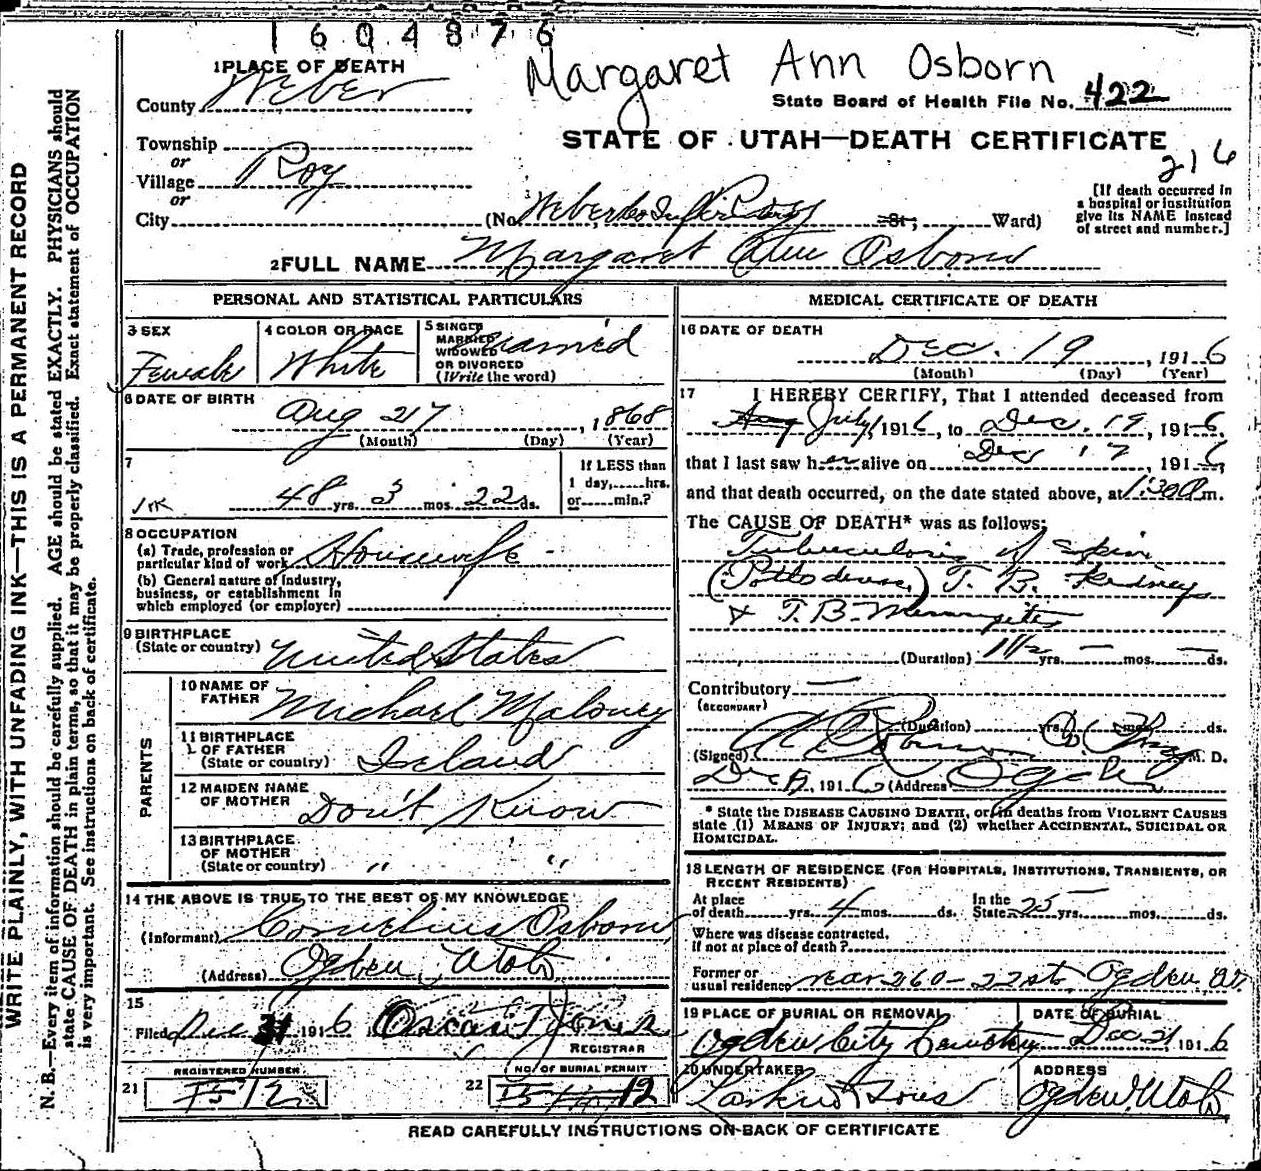 1604876
Margaret Ann Osborn
1 PLACE OF DEATH
County Weber
State Board of Health File No. 422
STATE OF UTAH—DEATH CERTIFICATE
216
Township
or
Village Roy
or
City (No. Weber Co Infirmary St; Ward)
[If death occurred in
a hospital or institution
give its NAME instead
of street and number.]
2 FULL NAME Margaret Ann Osborn
PERSONAL AND STATISTICAL PARTICULARS
3 SEX
Female
4 COLOR OR RACE
White
5 SINGLE
MARRIED
WIDOWED
OR DIVORCED
(Write the word)
Married
6 DATE OF BIRTH
Aug 27, 1868
(Month) (Day) (Year)
7
48 yrs. 3 mos. 22 ds.
If LESS than
1 day, hrs.
or min.?
8 OCCUPATION
(a) Trade, profession or
particular kind of work Housewife
(b) General nature of industry,
business, or establishment in
which employed (or employer)
9 BIRTHPLACE
(State or country) United States
PARENTS
10 NAME OF
FATHER Michael Maloney
11 BIRTHPLACE
OF FATHER
(State or country) Ireland
12 MAIDEN NAME
OF MOTHER Don't Know
13 BIRTHPLACE
OF MOTHER
(State or country) " "
14 THE ABOVE IS TRUE TO THE BEST OF MY KNOWLEDGE
(Informant) Cornelius Osborn
(Address) Ogden, Utah
15
Filed Dec 21 1916 Oscar T Jones
REGISTRAR
REGISTERED NUMBER
21 12
NO. OF BURIAL PERMIT
22 12
MEDICAL CERTIFICATE OF DEATH
16 DATE OF DEATH
Dec. 19, 1916
(Month) (Day) (Year)
17 I HEREBY CERTIFY, That I attended deceased from
Aug July, 1916, to Dec. 19, 1916.
that I last saw her alive on Dec 17, 1916,
and that death occurred, on the date stated above, at 1:30 m.
The CAUSE OF DEATH* was as follows:
Tuberculosis of Spine
(Potts disease) T. B. Kidneys
& T.B. Meningitis
(Duration) 1 1/2 yrs. — mos. — ds.
Contributory —
(SECONDARY)
(Duration) yrs. mos. ds.
(Signed) M. D.
Dec, 1916 (Address) Ogden
* State the DISEASE CAUSING DEATH, or in deaths from VIOLENT CAUSES
state (1) MEANS OF INJURY; and (2) whether ACCIDENTAL, SUICIDAL OR
HOMICIDAL.
18 LENGTH OF RESIDENCE (FOR HOSPITALS, INSTITUTIONS, TRANSIENTS, OR
RECENT RESIDENTS)
At place
of death yrs. 4 mos. ds.
In the
State 25 yrs. mos. ds.
Where was disease contracted,
if not at place of death?
Former or
usual residence rear 260 - 22 st. Ogden, Ut.
19 PLACE OF BURIAL OR REMOVAL
Ogden City Cemetery
DATE OF BURIAL
Dec 21 1916
20 UNDERTAKER
Larkin & Sons
ADDRESS
Ogden, Utah
READ CAREFULLY INSTRUCTIONS ON BACK OF CERTIFICATE
WRITE PLAINLY, WITH UNFADING INK—THIS IS A PERMANENT RECORD
N. B.—Every item of information should be carefully supplied. AGE should be stated EXACTLY. PHYSICIANS should
state CAUSE OF DEATH in plain terms, so that it may be properly classified. Exact statement of OCCUPATION
is very important. See instructions on back of certificate.